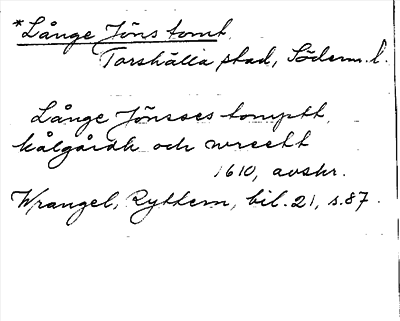 *Långe Jöns tomt.
Torshälla stad, Söderm. l.
Långe Jönsses tomptt,
kålgårdh och wreett
1610, avskr.
Wrangel, Ryttern, bil. 21, s. 87.